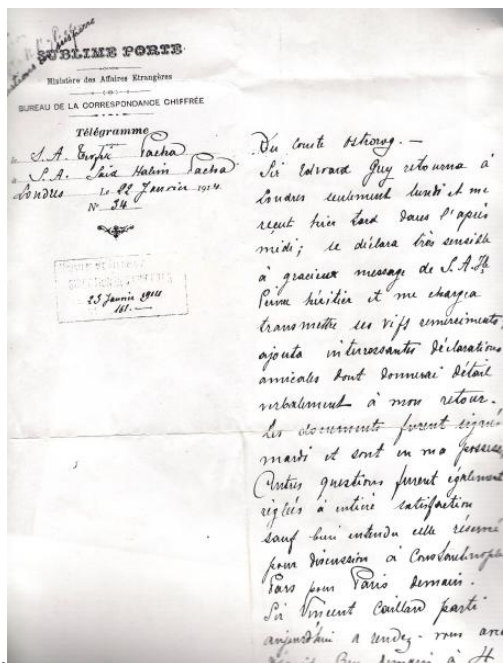 SUBLIME PORTE
Ministère des Affaires Etrangères
BUREAU DE LA CORRESPONDANCE CHIFFRÉE
Télégramme
de S.A. Tevfik Pacha
à S.A. Saïd Halim Pacha
Londres le 22 Janvier 1914
N° 34
23 Janvier 1914
161.—
Du comte Ostrorog.—
Sir Edward Guy retourna à
Londres seulement lundi et me
reçut hier tard dans l'après
midi; se déclara très sensible
à gracieux message de S.A. Ile
Prince héritier et me chargea
transmettre ses vifs remerciments,
ajouta interressantes déclarations
amicales dont donnerai détail
verbalement à mon retour.
Les documents furent signés
mardi et sont en ma
Autres questions furent également
réglées à entière satisfaction
sauf bien entendu celle réservée
pour discussion à Constantinople
Pars pour Paris demain.
Sir Vincent Caillard parti
aujourd'hui a rendez-vous avec
demain à